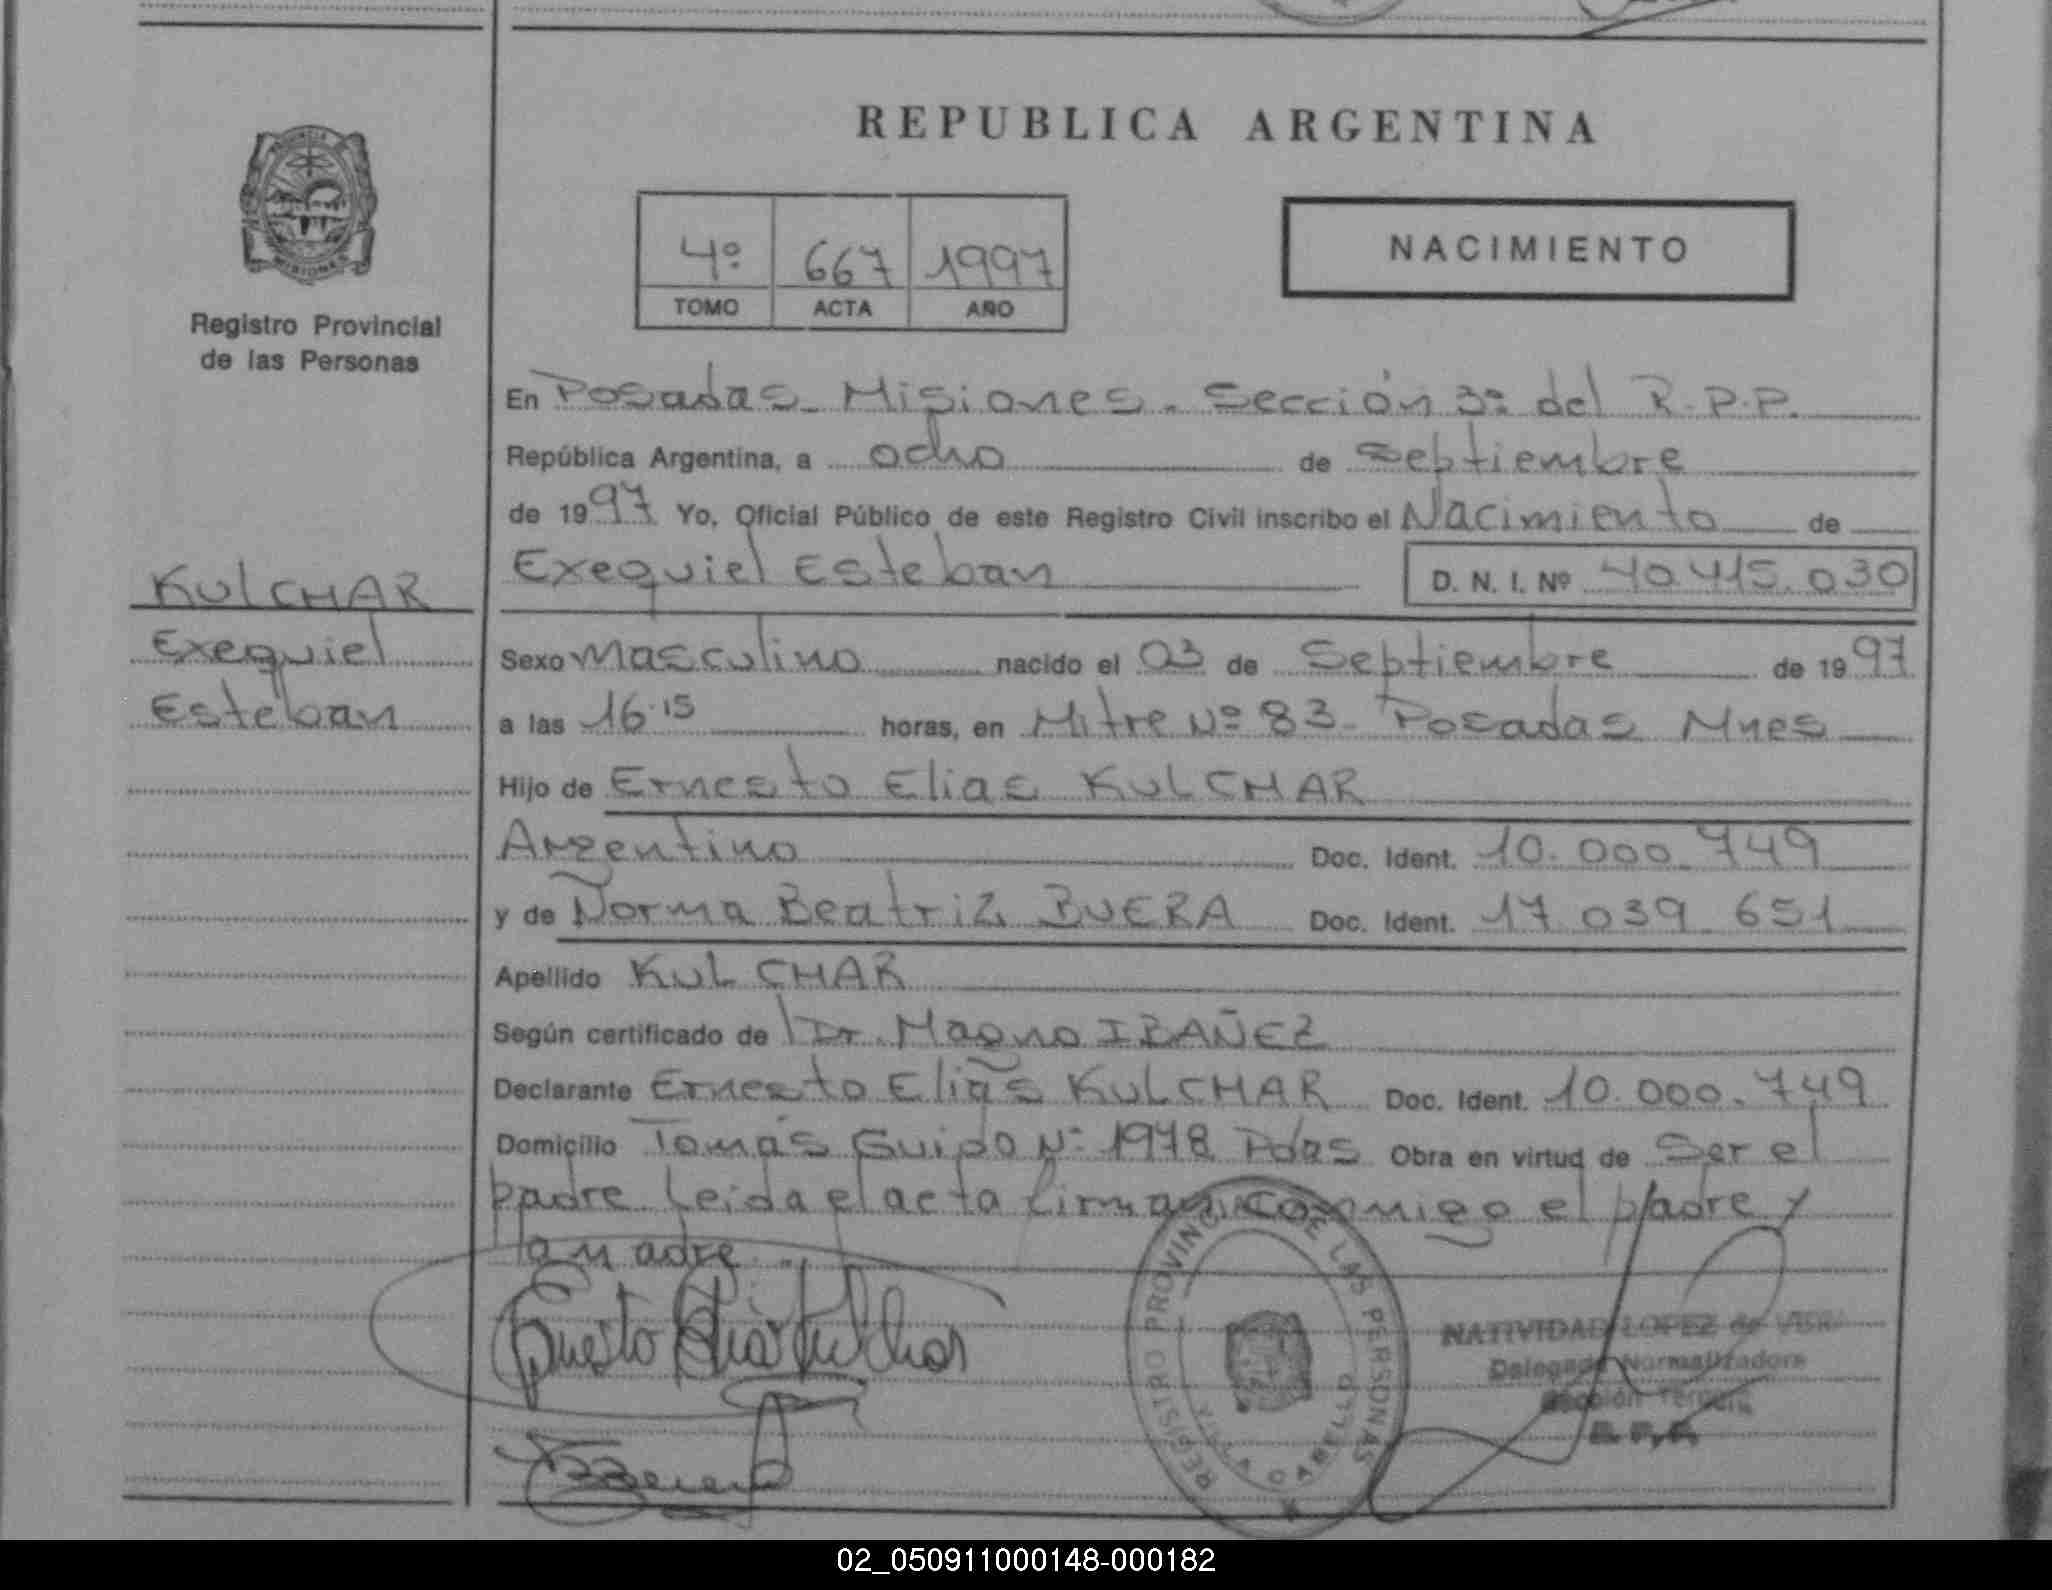 REPUBLICA ARGENTINA
MISIONES
Registro Provincial
de las Personas
4º 667 1997
TOMO ACTA AÑO
NACIMIENTO
En Posadas - Misiones - Sección 3ª del R.P.P.
República Argentina, a ocho de Septiembre
de 1997 Yo, Oficial Público de este Registro Civil inscribo el Nacimiento de
Exequiel Esteban D. N. I. Nº 40.415.030
KULCHAR
Exequiel
Esteban
Sexo Masculino nacido el 03 de Septiembre de 1997
a las 16.15 horas, en Mitre Nº 83 - Posadas Mnes
Hijo de Ernesto Elias KULCHAR
Argentino Doc. Ident. 10.000.749
y de Norma Beatriz BUERA Doc. Ident. 17.039.651
Apellido KULCHAR
Según certificado de Dr. Magno IBAÑEZ
Declarante Ernesto Elias KULCHAR Doc. Ident. 10.000.749
Domicilio Tomás Guido Nº 1978 Pdas Obra en virtud de Ser el
padre. Leida el acta firman conmigo el padre y
la madre.
Ernesto Elias Kulchar
REGISTRO PROVINCIAL DE LAS PERSONAS
VILLA CABELLO
NATIVIDAD LOPEZ de
Delegada Normalizadora
Sección Tercera
R.P.P.
02_050911000148-000182